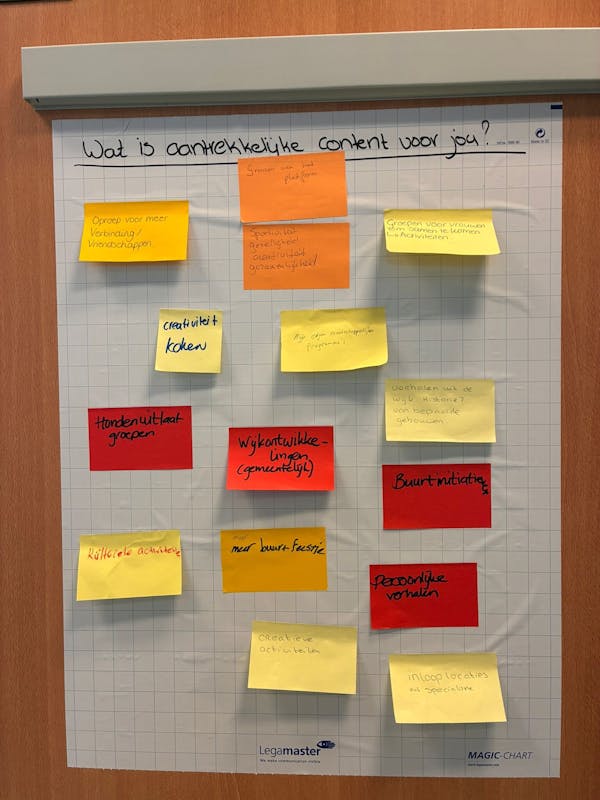 Wat is aantrekkelijke content voor jou?
Groeien van het
platform
Oproep voor meer
Verbinding/
Vriendschappen
Sportiviteit
gezelligheid
creativiteit
Groepen voor vrouwen
om samen te komen
Activiteiten
creativiteit
koken
Mijn eigen
programma!
verhalen uit de
wijk Historie?
van bepaalde
gebouwen
Hondenuitlaat
groepen
Wijkontwikke-
lingen
(gemeentelijk)
Buurtinitiatie
activiteite
meer buurt-feestje
Persoonlijke
verhalen
creatieve
activiteiten
inloop locaties
Legamaster
We make communication visible
MAGIC-CHART
www.legamaster.com